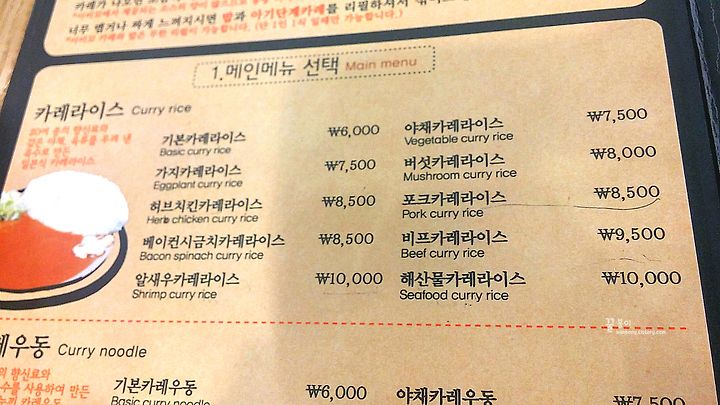 너무 맵거나 짜게 느껴지시면 밥과 아기단계카레를 리필하셔서
1.메인메뉴 선택 Main menu
카레라이스 Curry rice
기본카레라이스 ₩6,000
Basic curry rice
가지카레라이스 ₩7,500
Eggplant curry rice
허브치킨카레라이스 ₩8,500
Herb chicken curry rice
베이컨시금치카레라이스 ₩8,500
Bacon spinach curry rice
알새우카레라이스 ₩10,000
Shrimp curry rice
야채카레라이스 ₩7,500
Vegetable curry rice
버섯카레라이스 ₩8,000
Mushroom curry rice
포크카레라이스 ₩8,500
Pork curry rice
비프카레라이스 ₩9,500
Beef curry rice
해산물카레라이스 ₩10,000
Seafood curry rice
레우동 Curry noodle
기본카레우동 ₩6,000
Basic curry noodle
야채카레우동 ₩7,500